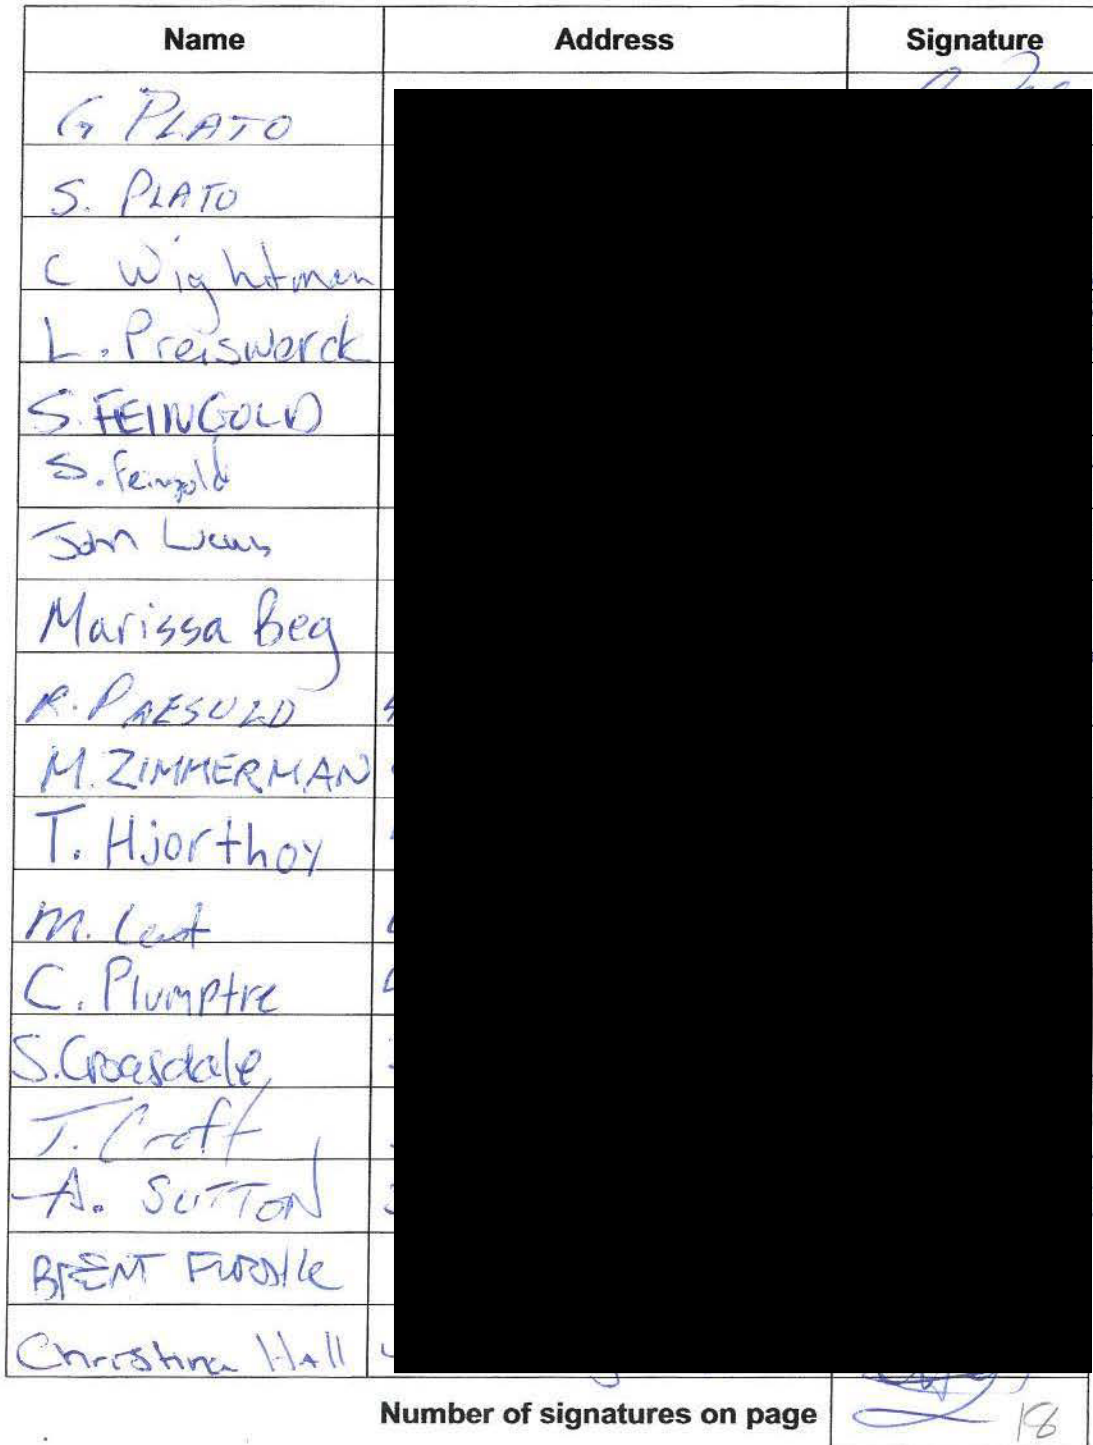 Name Address Signature
G PLATO
S. PLATO
C Wightman
L. Preiswerck
S. FEINGOLD
S. Feingold
John
Marissa Beg
R. PAESOLD
M. ZIMMERMAN
T. Hjorthoy
M.
C. Plumptre
S. Croasdale
T. Croft
A. SUTTON
BRENT
Christina Hall
Number of signatures on page 18